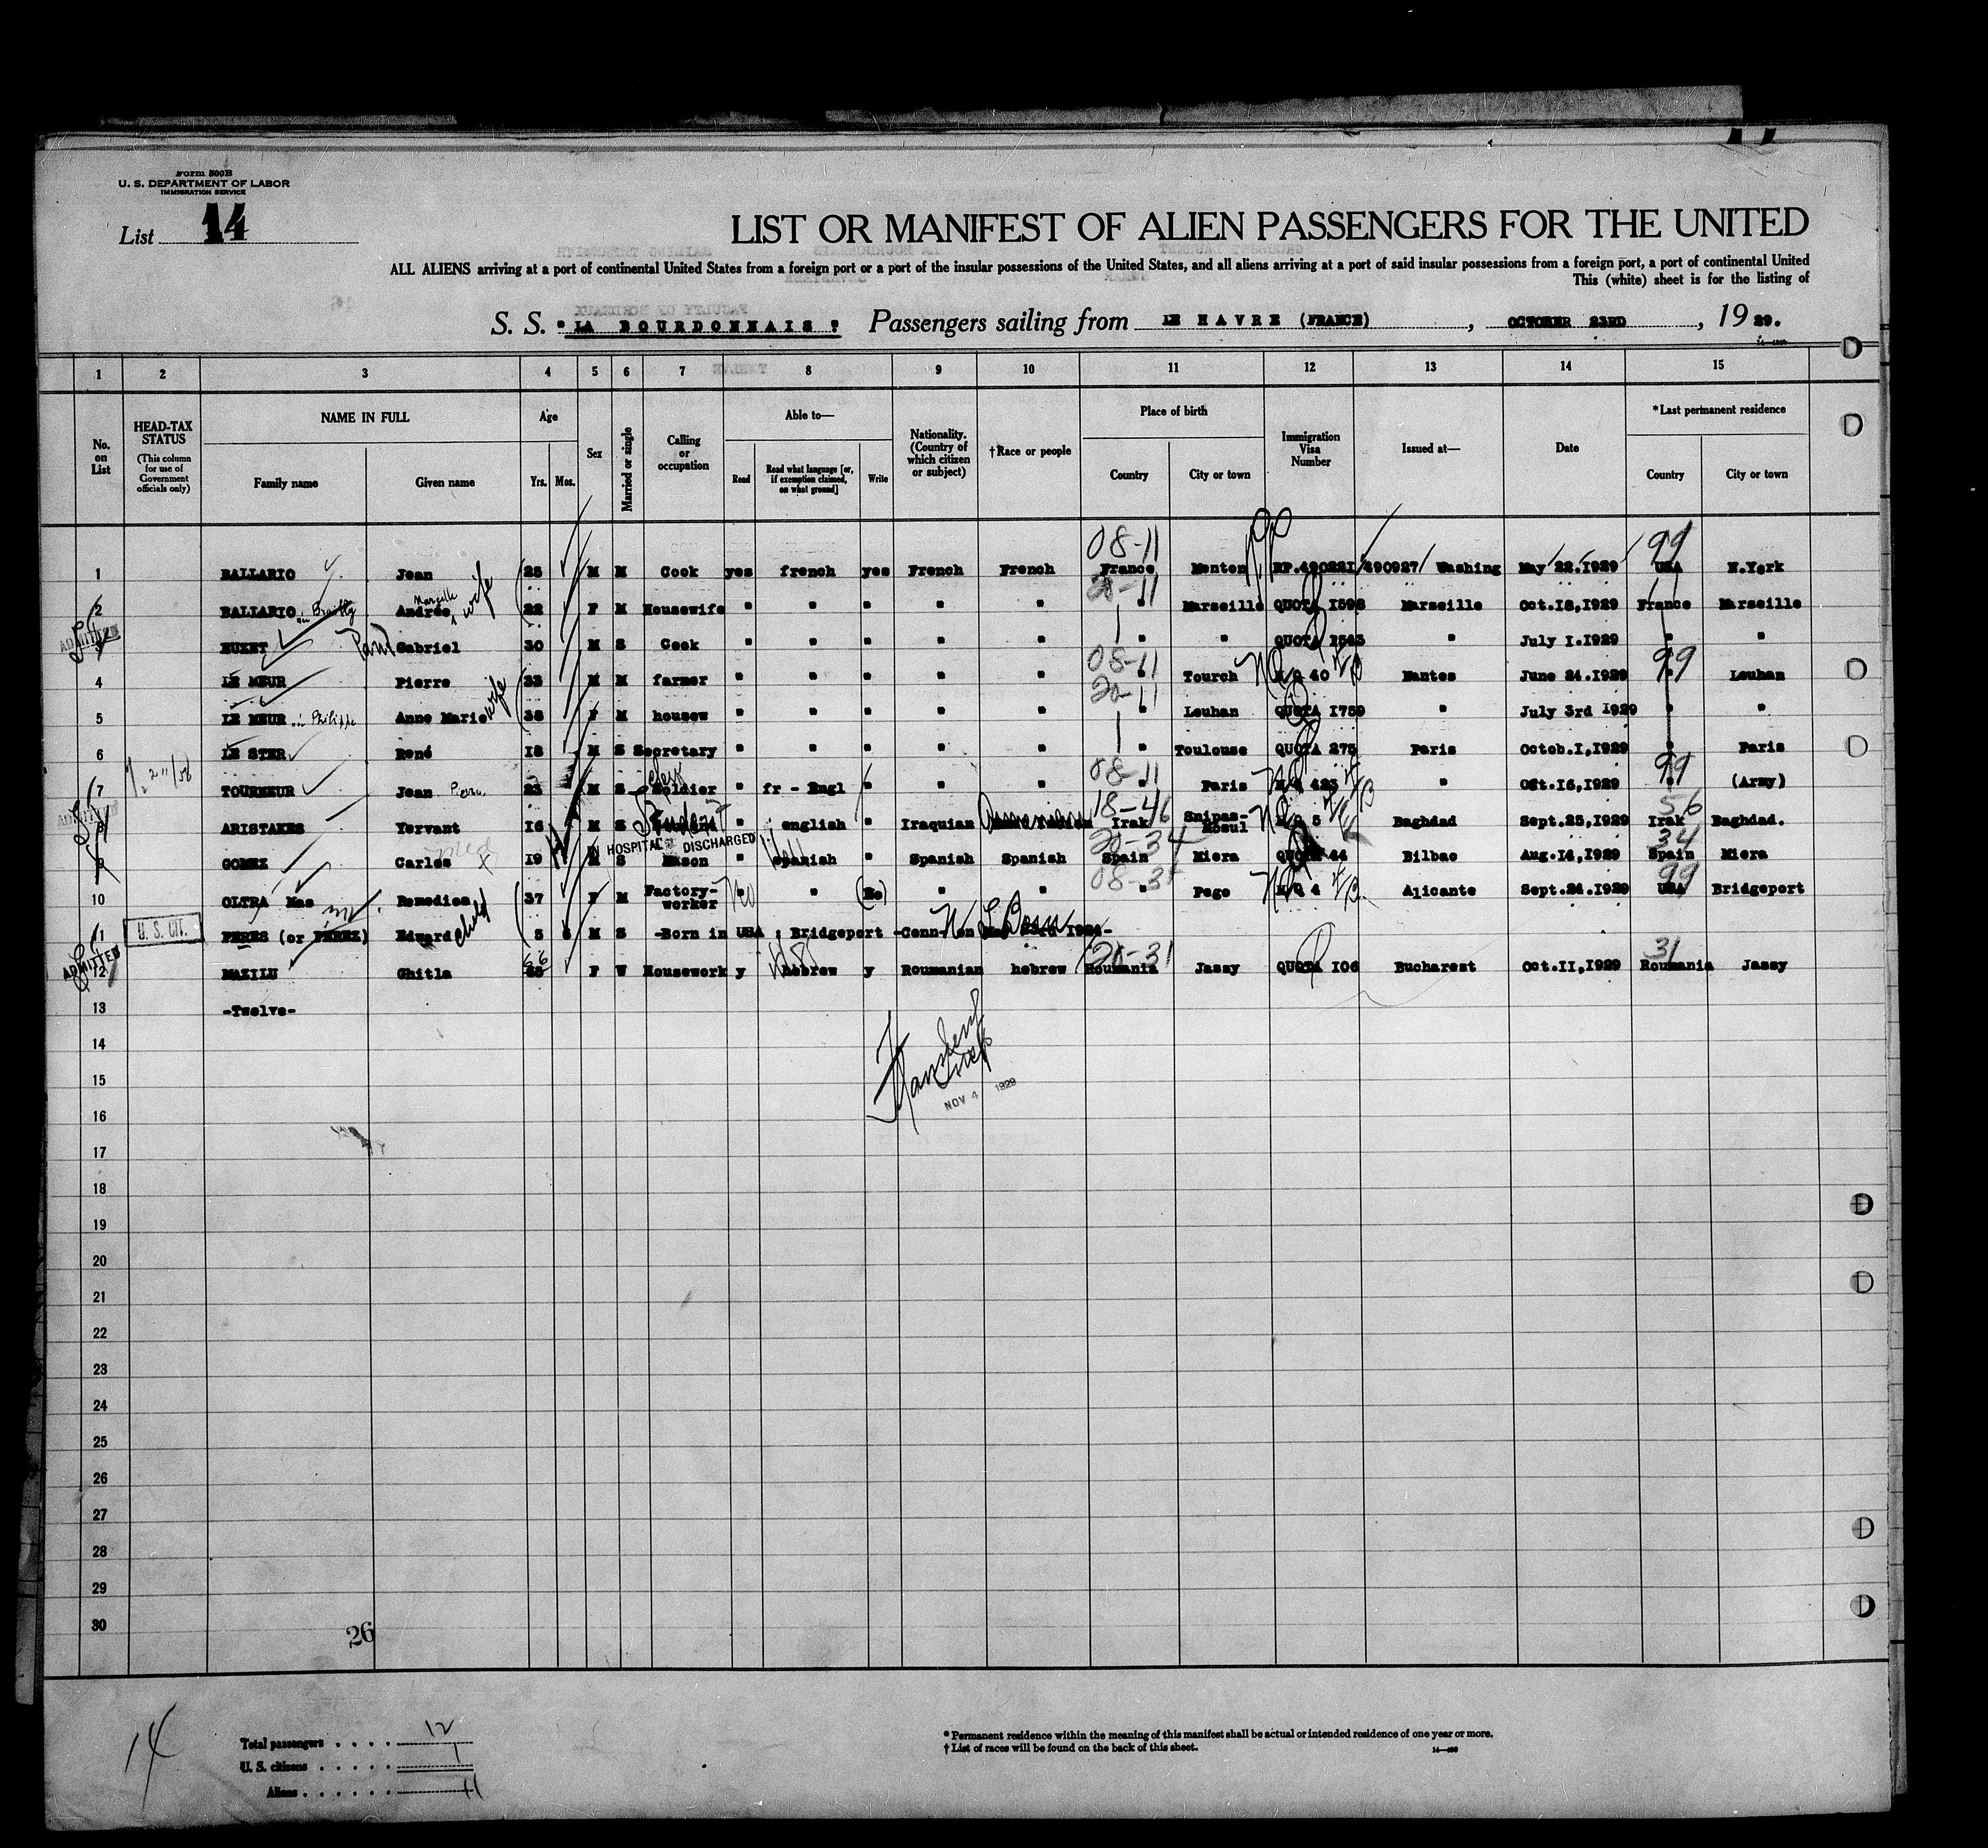 Form 500B
U. S. DEPARTMENT OF LABOR
IMMIGRATION SERVICE
List 14
LIST OR MANIFEST OF ALIEN PASSENGERS FOR THE UNITED
ALL ALIENS arriving at a port of continental United States from a foreign port or a port of the insular possessions of the United States, and all aliens arriving at a port of said insular possessions from a foreign port, a port of continental United
This (white) sheet is for the listing of
S. S. "LA BOURDONNAIS" Passengers sailing from LE HAVRE (FRANCE), OCTOBER 23RD, 1929.
1 2 3 4 5 6 7 8 9 10 11 12 13 14 15
No. on List
HEAD-TAX STATUS (This column for use of Government officials only)
NAME IN FULL
Family name Given name
Age
Yrs. Mos.
Sex
Married or single
Calling or occupation
Able to—
Read Read what language [or, if exemption claimed, on what ground] Write
Nationality. (Country of which citizen or subject)
†Race or people
Place of birth
Country City or town
Immigration Visa Number
Issued at—
Date
*Last permanent residence
Country City or town
08-11 99
1 BALLARIO Jean 25 M M Cook yes french yes French French France Menton RP.490221/490927/ Washing May 22.1929 USA N.York
Marseille 20-11
2 BALLARIO Andrée wife 22 F M Housewife " " " " " " Marseille QUOTA 1598 Marseille Oct.18,1929 France Marseille
ADMITTED
3 Paul Gabriel 30 M S Cook " " " " " " " QUOTA 1543 " July 1.1929 " "
08-11 99
4 LE MEUR Pierre 33 M M farmer " " " " " " Tourch N Q 40 Nantes June 24.1929 " Leuhan
20-11
5 LE MEUR Philippe Anne Marie wife 38 F M housew " " " " " " Leuhan QUOTA 1759 " July 3rd 1929 " "
6 LE STER René 18 M S Secretary " " " " " " Toulouse QUOTA 275 Paris Octob.1,1929 " Paris
08-11 99
7 TOURMEUR Jean Pierre 23 M S Soldier " fr - Engl " " " " Paris N Q 423 " Oct.16,1929 " (Army)
ADMITTED
Student 18-46 56
8 ARISTAKES Yervant 16 M S " english " Iraquian Armenian Irak Snipas-Mosul N Q 5 Baghdad Sept.25,1929 Irak Baghdad.
IN HOSPITAL DISCHARGED
20-34 34
9 GOMEZ Carlos 19 M S Mason " Spanish " Spanish Spanish Spain Miera QUOTA 44 Bilbao Aug.14,1929 Spain Miera
08-35 99
10 OLTRA Mas Remedios 37 F M Factory-worker " " (No) " " " Pego N Q 4 Alicante Sept.24.1929 USA Bridgeport
U. S. CIT.
11 PERES (or PEREZ) Edward child 5 M S -Born in USA : Bridgeport -Conn- on 1924-
U S Born
ADMITTED
20-31 31
12 MAZILU Ghitla 66 F W Housework y hebrew y Roumanian hebrew Roumania Jassy QUOTA 106 Bucharest Oct.11,1929 Roumania Jassy
13 -Twelve-
14
15
NOV 4 1929
16
17
18
19
20
21
22
23
24
25
26
27
28
29
30
26
14
Total passengers 12
U. S. citizens 1
Aliens 11
* Permanent residence within the meaning of this manifest shall be actual or intended residence of one year or more.
† List of races will be found on the back of this sheet.